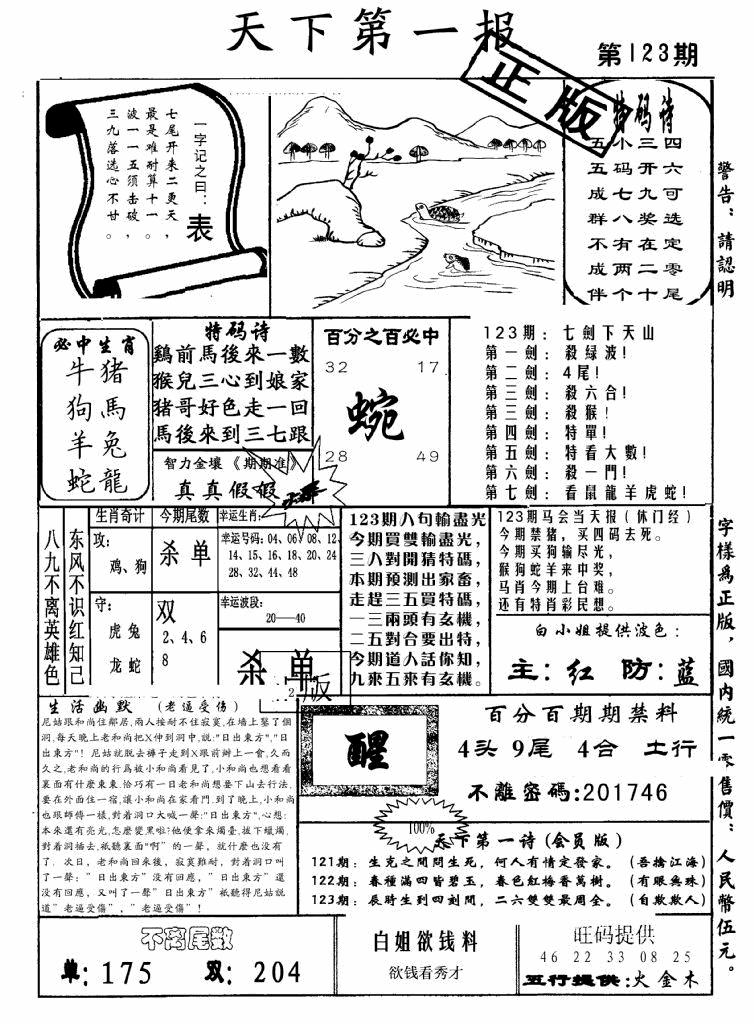 天下第一报
第123期
正版
一字记之曰：表
七尾开来二更天，
最是难耐算十一。
波一一五须击破，
三九落选心不甘。
特码诗
五小三四
五码开六
成七九可
群八奖选
不有在定
成两二零
伴个十尾
警告：請認明
字様爲正版，國内統一零售價：人民幣伍元。
必中生肖
牛猪
狗馬
羊兔
蛇龍
特码诗
鷄前馬後來一數
猴兒三心到娘家
豬哥好色走一回
馬後來到三七跟
智力金壤《期期准》
真真假假
百分之百必中
32 17
蜿
28 49
123期：七劍下天山
第一劍：殺緑波！
第二劍：4尾！
第三劍：殺六合！
第三劍：殺猴！
第四劍：特單！
第五劍：特看大數！
第六劍：殺一門！
第七劍：看鼠龍羊虎蛇！
八九不离英雄色
东风不识红知己
生肖奇计
攻：
鸡、狗
守：
虎兔
龙蛇
今期尾数
杀单
双
2、4、6
8
幸运生肖：
幸运号码：04、06、08、12、
14、15、16、18、20、24
28、32、44、48
幸运波段：
20——40
杀单
版
123期八句輸盡光
今期買雙輸盡光，
三八對開猜特碼，
本期預測出家畜，
走趕三五買特碼，
一三兩頭有玄機，
二五對合要出特，
今期道人話你知，
九來五來有玄機。
123期马会当天报（休门经）
今期禁猪，买四码去死。
今期买狗输尽光，
猴狗蛇羊来中奖，
马肖今期上台难。
还有特肖彩民想。
白小姐提供波色：
主：红 防：蓝
生活幽默（老逼受伤）
尼姑跟和尚住鄰居，兩人按耐不住寂寞，在墙上鑿了個
洞，每天晚上老和尚把X伸到洞中，說："日出東方"，"日
出東方"！尼姑就脱去褲子走到X跟前辦上一會，久而
久之，老和尚的行爲被小和尚看見了，小和尚也想看看
裏面有什麽東東，恰巧有一日老和尚想要下山去行法，
要在外面住一宿，讓小和尚在家看門，到了晚上，小和尚
也跟師傅一様，對着洞口大喊一聲："日出東方"，心想：
本來還有亮光，怎麽變黑啦？他便拿來燭臺，拔下蠟燭，
對着洞插去，祇聽裏面"啊"的一聲，就什麽也没有
了．次日，老和尚回來後，寂寞難耐，對着洞口叫
了一聲："日出東方"没有回應，"日出東方"還
没有回應，又叫了一聲"日出東方"祇聽得尼姑說
道"老逼受傷"，"老逼受傷"！
醒
百分百期期禁料
4头 9尾 4合 土行
不離密碼：201746
100%
天下第一诗（会员版）
121期：生克之間問生死，何人有情定發家。（吾擒江海）
122期：春種滿四皆碧玉，春色紅梅香萬樹。（有眼無珠）
123期：辰時生到四刻間，二六雙雙最周全。（自欺欺人）
不离尾数
单：175 双：204
白姐欲钱料
欲钱看秀才
旺码提供
46 22 33 08 25
五行提供：火金木